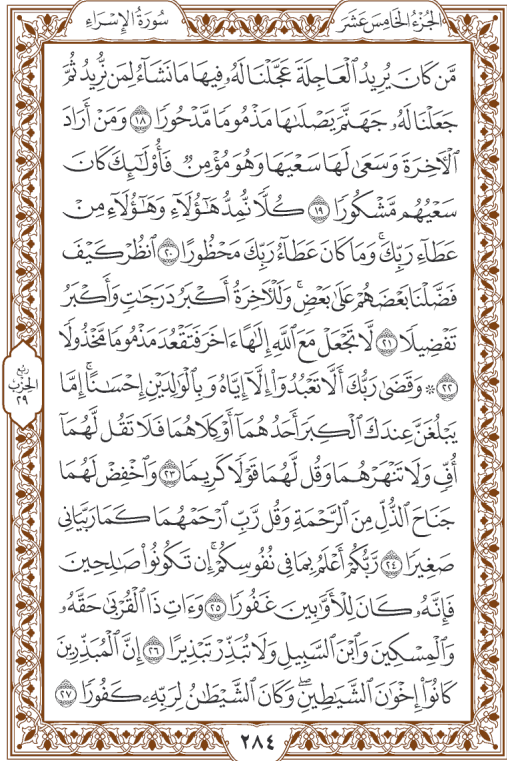 الجُزْءُ الخَامِسَ عَشَرَ
سُورَةُ الإِسْرَاءِ
مَّن كَانَ يُرِيدُ ٱلۡعَاجِلَةَ عَجَّلۡنَا لَهُۥ فِيهَا مَا نَشَآءُ لِمَن نُّرِيدُ ثُمَّ
جَعَلۡنَا لَهُۥ جَهَنَّمَ يَصۡلَىٰهَا مَذۡمُومٗا مَّدۡحُورٗا ١٨ وَمَنۡ أَرَادَ
ٱلۡأٓخِرَةَ وَسَعَىٰ لَهَا سَعۡيَهَا وَهُوَ مُؤۡمِنٞ فَأُوْلَٰٓئِكَ كَانَ
سَعۡيُهُم مَّشۡكُورٗا ١٩ كُلّٗا نُّمِدُّ هَٰٓؤُلَآءِ وَهَٰٓؤُلَآءِ مِنۡ
عَطَآءِ رَبِّكَۚ وَمَا كَانَ عَطَآءُ رَبِّكَ مَحۡظُورًا ٢٠ ٱنظُرۡ كَيۡفَ
فَضَّلۡنَا بَعۡضَهُمۡ عَلَىٰ بَعۡضٖۚ وَلَلۡأٓخِرَةُ أَكۡبَرُ دَرَجَٰتٖ وَأَكۡبَرُ
تَفۡضِيلٗا ٢١ لَّا تَجۡعَلۡ مَعَ ٱللَّهِ إِلَٰهًا ءَاخَرَ فَتَقۡعُدَ مَذۡمُومٗا مَّخۡذُولٗا
٢٢ ۞ وَقَضَىٰ رَبُّكَ أَلَّا تَعۡبُدُوٓاْ إِلَّآ إِيَّاهُ وَبِٱلۡوَٰلِدَيۡنِ إِحۡسَٰنًاۚ إِمَّا
يَبۡلُغَنَّ عِندَكَ ٱلۡكِبَرَ أَحَدُهُمَآ أَوۡ كِلَاهُمَا فَلَا تَقُل لَّهُمَآ
أُفّٖ وَلَا تَنۡهَرۡهُمَا وَقُل لَّهُمَا قَوۡلٗا كَرِيمٗا ٢٣ وَٱخۡفِضۡ لَهُمَا
جَنَاحَ ٱلذُّلِّ مِنَ ٱلرَّحۡمَةِ وَقُل رَّبِّ ٱرۡحَمۡهُمَا كَمَا رَبَّيَانِي
صَغِيرٗا ٢٤ رَّبُّكُمۡ أَعۡلَمُ بِمَا فِي نُفُوسِكُمۡۚ إِن تَكُونُواْ صَٰلِحِينَ
فَإِنَّهُۥ كَانَ لِلۡأَوَّٰبِينَ غَفُورٗا ٢٥ وَءَاتِ ذَا ٱلۡقُرۡبَىٰ حَقَّهُۥ
وَٱلۡمِسۡكِينَ وَٱبۡنَ ٱلسَّبِيلِ وَلَا تُبَذِّرۡ تَبۡذِيرًا ٢٦ إِنَّ ٱلۡمُبَذِّرِينَ
كَانُوٓاْ إِخۡوَٰنَ ٱلشَّيَٰطِينِۖ وَكَانَ ٱلشَّيۡطَٰنُ لِرَبِّهِۦ كَفُورٗا ٢٧
ربع
الحزب
٢٩
٢٨٤